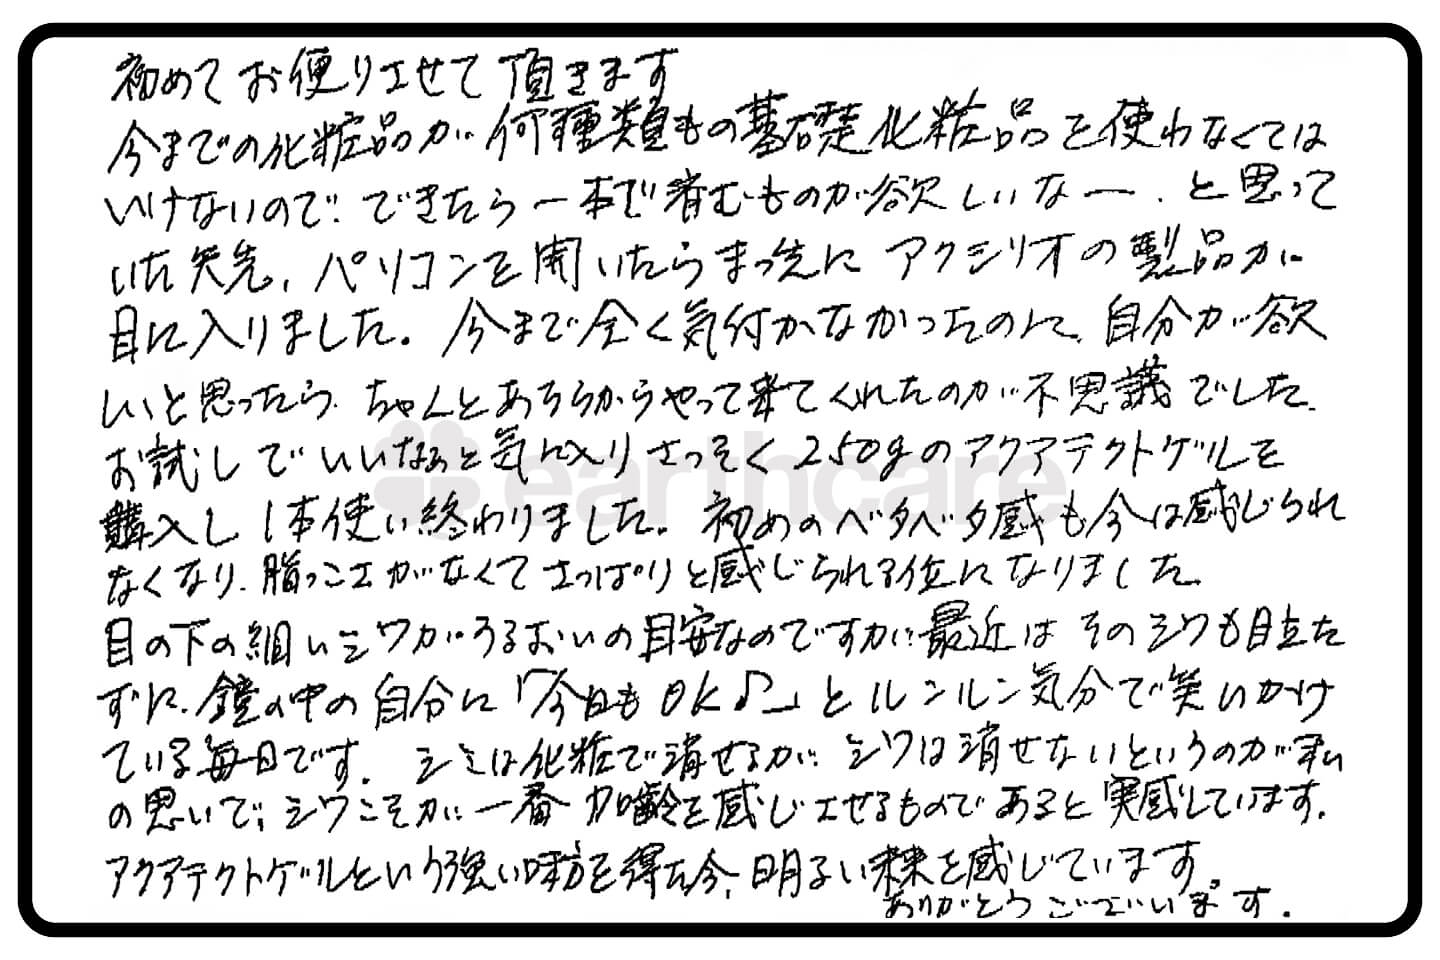 初めてお便りさせて頂きます
今までの化粧品が何種類もの基礎化粧品を使わなくては
いけないので、できたら一本で済むものが欲しいなー、と思って
いた矢先、パソコンを開いたらまっ先にアクシリオの製品が
目に入りました。今まで全く気付かなかったのに、自分が欲
しいと思ったら、ちゃんとあちらからやって来てくれたのが不思議でした。
お試しでいいなぁと気に入りさっそく250gのアクアテクトゲルを
購入し1本使い終わりました。初めのベタベタ感も今は感じられ
なくなり、脂っこさがなくてさっぱりと感じられる位になりました。
目の下の細いシワがうるおいの目安なのですが、最近はそのシワも目立た
ずに、鏡の中の自分に「今日もOK♪」とルンルン気分で笑いかけ
ている毎日です。シミは化粧で消せるが、シワは消せないというのが私
の思いで、シワこそが一番加齢を感じさせるものであると実感しています。
アクアテクトゲルという強い味方を得た今、明るい未来を感じています。
ありがとうございます。
earthcare